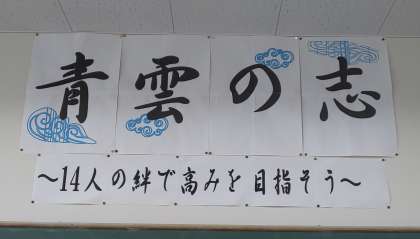 青雲の志
～14人の絆で高みを目指そう～